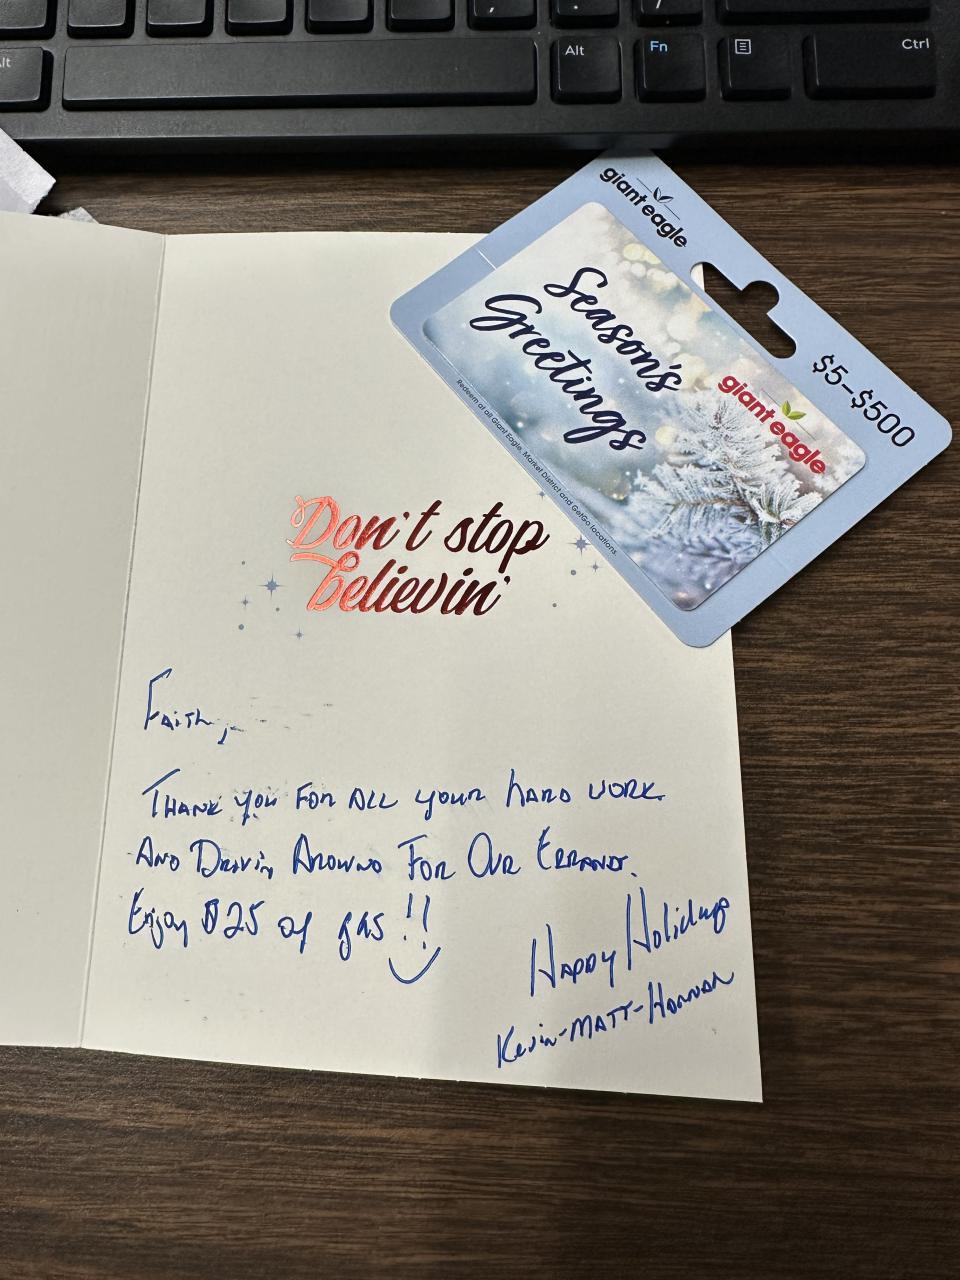 Alt
Fn
Ctrl
giant eagle
$5-$500
Season's
Greetings
giant eagle
Redeem at all Giant Eagle, Market District and GetGo locations.
Don't stop
believin'
Faith,
Thank you for all your hard work
And Drivin Around For Our Errands.
Enjoy $25 of gas!!
Happy Holidays
Kevin-Matt-Hannah